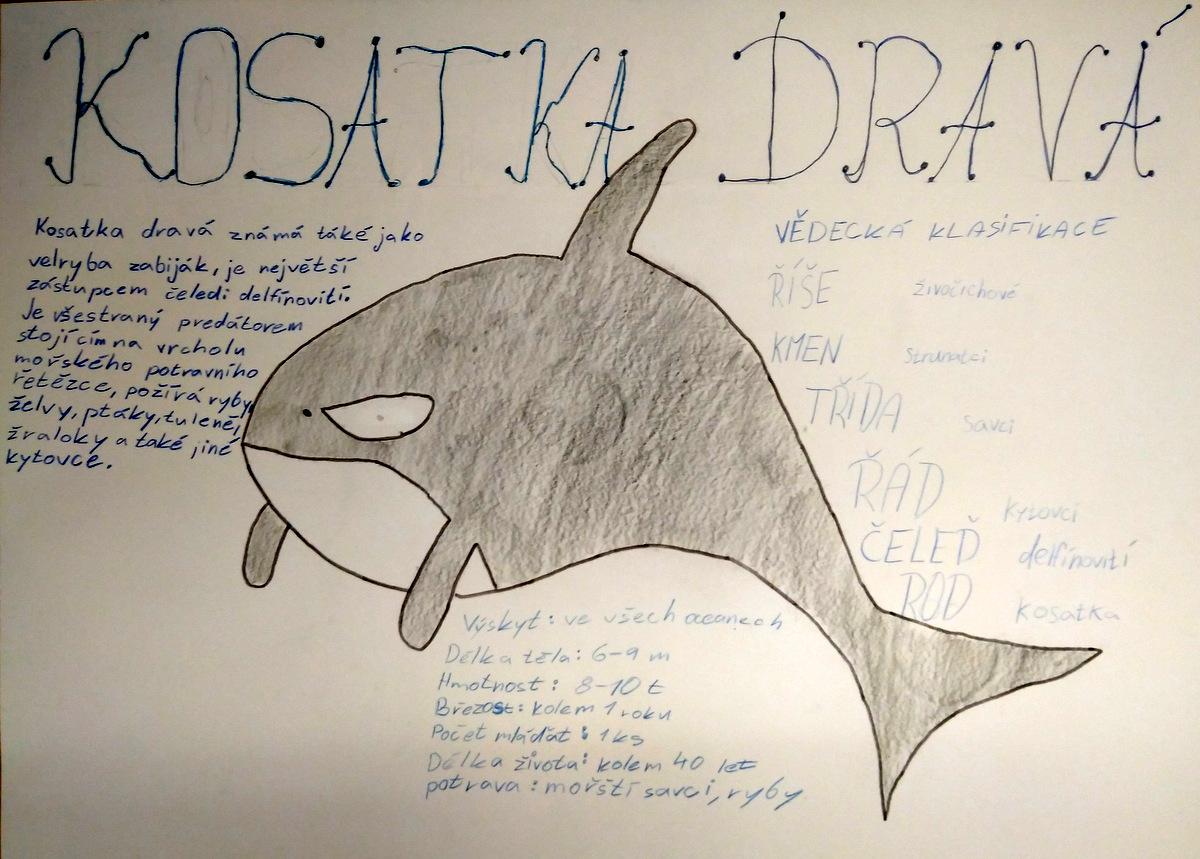 KOSATKA DRAVÁ
Kosatka dravá známá také jako
velryba zabiják, je největší
zástupcem čeledi delfínovití.
Je všestraný predátorem
stojícím na vrcholu
mořského potravního
řetězce, požírá ryby,
želvy, ptáky, tuleně,
žraloky a také jiné
kytovce.
VĚDECKÁ KLASIFIKACE
ŘÍŠE živočichové
KMEN strunatci
TŘÍDA savci
ŘÁD kytovci
ČELEĎ delfínovití
ROD kosatka
Výskyt: ve všech oceanech
Délka těla: 6-9 m
Hmotnost: 8-10 t
Březost: kolem 1 roku
Počet mláďat: 1 ks
Délka života: kolem 40 let
potrava: mořští savci, ryby